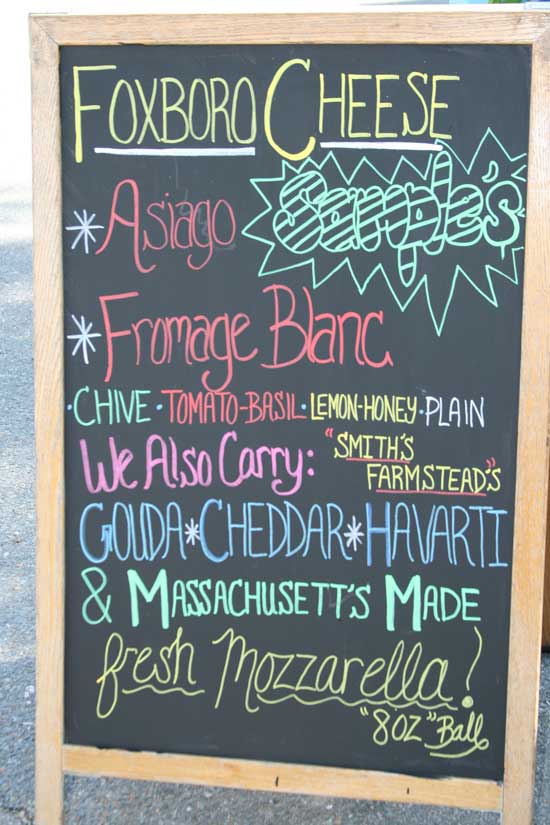 FOXBORO CHEESE
Sample's
* Asiago
* Fromage Blanc
·CHIVE·TOMATO-BASIL·LEMON-HONEY·PLAIN
We Also Carry: "SMITH'S
FARMSTEAD'S"
GOUDA*CHEDDAR*HAVARTI
& MASSACHUSETT'S MADE
fresh Mozzarella!
"8oz" Ball